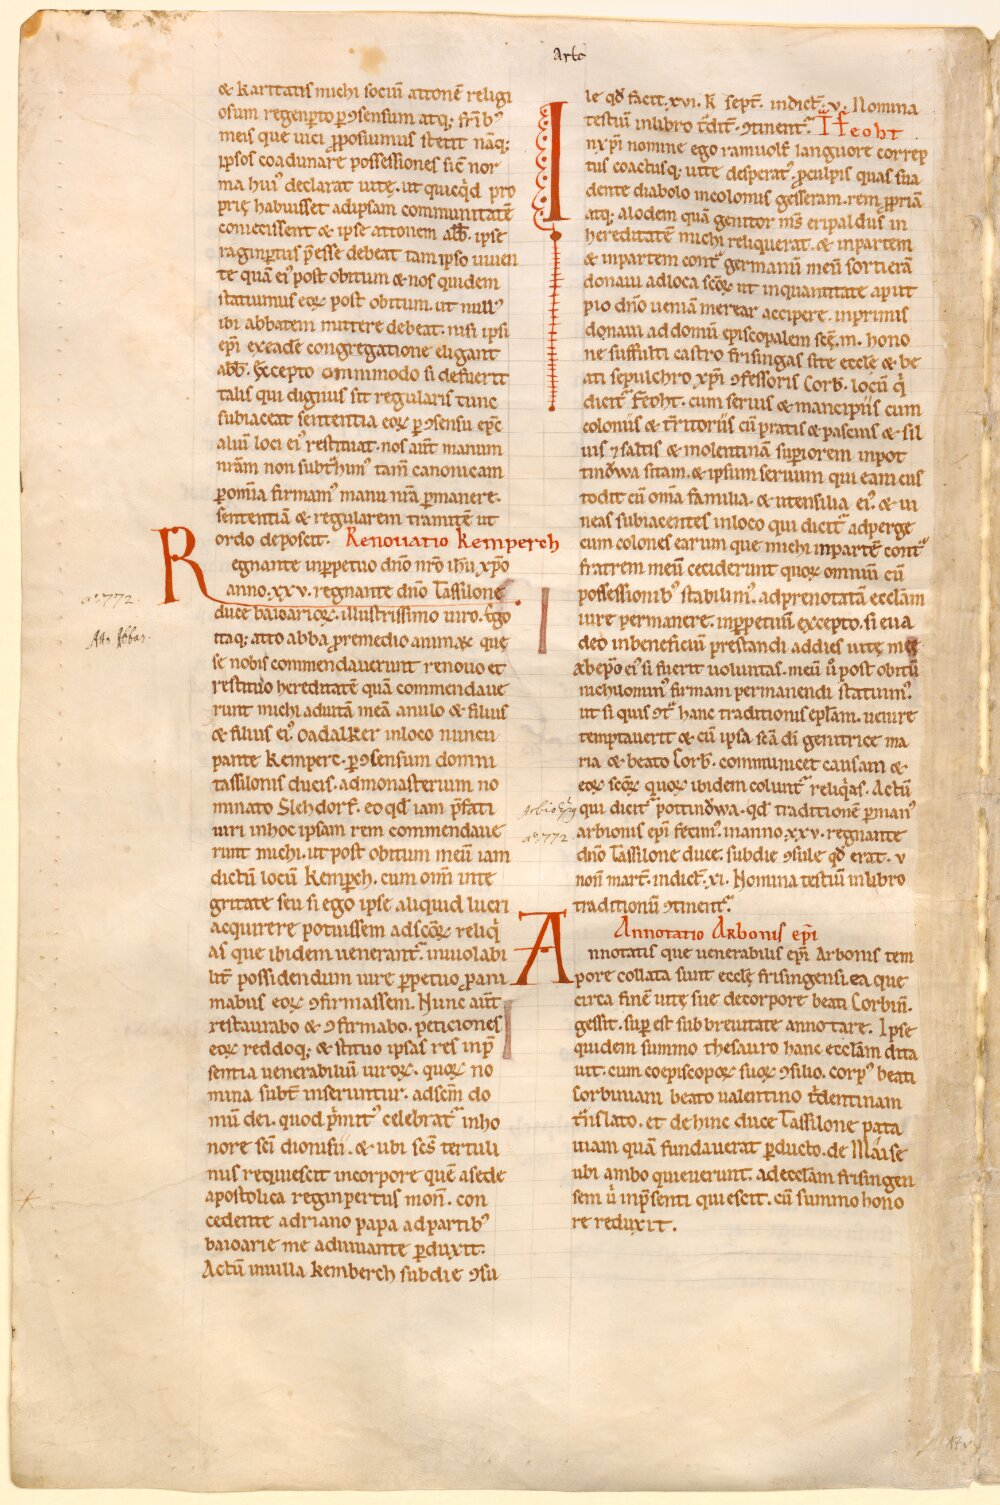 Arbo
& karitatis michi sociũ attonẽ religi
osum regenpto ꝑ ꝯsensum atq; fr̃ibꝰ
meis que uici ꝓposiuimus stetit nãq;
ipsos coadunare possessiones sic̃ nor
ma huiꝰ declarat uitę. ut quicq̃d pro
prię habuisset adipsam communitatẽ
coniecissent & ipse attonem abb̃. ipse
raginptus p̃esse debeat tam ipso uiuen
te quã eiꝰ post obitum & nos quidem
statuimus eoꝝ post obitum. ut nullꝰ
ibi abbatem mittere debeat. nisi ipsi
ep̃i exeadẽ congregatione eligant
abb̃. Excepto commodo si defuerit
talis qui dignus sit regularis tunc
subiaceat sententia eoꝝ ꝑ ꝯsensu ep̃c
aliũ loci eiꝰ restituat. nos aũt manum
nr̃am non subt̃himꝰ tam̃ canonicam
ꝑ om̃ia firmamꝰ manu nr̃a ꝑmanere.
sententiã & regularem tramitẽ ut
ordo deposcit. Renouatio kemperch
Regnante inꝑpetuo dño nr̃o ih̃u xp̃o
anno. xxv. regnante dño Tassilone
duce baioarioꝝ. illustrissimo uiro. Ego
itaq; atto abba ꝓremedio animaꝝ que
se nobis commendauerunt renouo et
restituo hereditatẽ quã commendaue
runt michi aduitã meã anulo & filius
& filius eiꝰ. oadalker inloco nuncu
pante kemperc. ꝑ ꝯsensum domni
tassilonis ducis. admonasterium no
minato Slehdorf. eo qd̃ iam p̃fati
uiri inhoc ipsam rem commendaue
runt michi. ut post obitum meũ iam
dictũ locũ kemꝑch. cum om̃i inte
gritate seu si ego ipse aliquid lucri
acquirere potuissem adsc̃oꝝ reliq̃
as que ibidem uenerant᷑. inuiolabi
lit̃ possidendum iure ꝑpetuo ꝓ ani
mabus eoꝝ ꝯfirmassem. Nunc aũt
restaurabo & ꝯfirmabo. peticiones
eoꝝ reddoq; & stituo ipsas res inp̃
sentia uenerabiliũ uiroꝝ. quoꝝ no
mina subt̃ inseruntur. adsc̃m do
mũ dei. quod p̃mitꝰ celebrat᷑ inho
nore sc̃i dionisii. & ubi sc̃s tertuli
nus requiescit incorpore quẽ asede
apostolica reginpertus mon̄. con
cedente adriano papa adpartibꝰ
baioarie me adiuuante ꝑduxit.
Actũ inuilla kemberch subdie ꝯsu
aº. 772.
Atto Abbas.
le qd̃ facit. xvi. k̃ sept̃. indict̃. v. Nomina
testiũ inlibro t̃dit̃. ꝯtinent᷑. If feoht
In xp̃i nomine ego ramuolt languore correp
tus coactusq; uitę desperatꝰ. ꝓculpis quas sua
dente diabolo incolomis gesseram. rem ꝓpriã
atq; alodem quã genitor mˢ eripaldus in
hereditatẽ michi reliquerat. & inpartem
& inpartem cont᷑ germanũ meũ sortierã
donaui adloca sc̃oꝝ ut inquantitate aput
pio dño ueniã merear accipere. inprimis
donaui addomũ episcopalem sc̃ę. m. hono
ne suffulti castro frisingas site eccl̃e & be
ati sepulchro xp̃i ꝯfessoris Corb̃. locũ q̃
dicit᷑ feoht. cum seruis & mancipiis cum
colonis & t̃ritoriis cũ pratis & pascuis & sil
uis ⁊ saltis & molentinã suꝑiorem inpot
tindwa sitam. & ipsum seruum qui eam cus
todit cũ om̃a familia. & utensilia eiꝰ. & ui
neas subiacentes inloco qui dicit᷑ adperge
cum colones earum que michi inpartẽ cont᷑
fratrem meũ ceciderunt quoꝝ omniũ cũ
possessionibꝰ stabilimꝰ. adprenotatã eccl̃am
iure permanere. inꝑpetuũ excepto. si eua
deo inbeneficiũ prestandi addies uitę meę
abep̃o eiꝰ si fuerit uoluntas. meũ ů post obitũ
nichilominꝰ firmam permanendi statuimꝰ.
ut si quis ꝯt᷑ hanc traditionis epl̃am. uenire
temptauerit & cũ ipsa sc̃ã di genitrice ma
ria & beato Corb̃. communicet causam &
eoꝝ sc̃oꝝ quoꝝ ibidem colunt᷑ reliq̃as. Actũ
qui dicit᷑ pottindwa. qd̃ traditionẽ ꝑmanꝰ
arbionis ep̃i fecimꝰ. inanno. xxv. regnante
dño Tassilone duce. subdie ꝯsule qd̃ erat. v
non̄ mart̃. indict̃. xi. Nomina testiũ inlibro
traditionũ ꝯtinent᷑.
aº. 772
Annotatio Arbonis ep̃i
Annotatis que uenerabilis ep̃i Arbonis tem
pore collata sunt eccl̃ę frisingensi. ea que
circa finẽ uitę sue decorpore beati Corbiñ.
gessit. suꝑ est sub breuitate annotare. Ipse
quidem summo thesauro hanc eccl̃am dita
uit. cum coepiscopoꝝ suoꝝ ꝯsilio. corpꝰ beati
corbiniani beato ualentino t̃dentinam
t̃nslato. et dehinc duce Tassilone pata
uiam quã fundauerat ꝑducto. de Maise
ubi ambo quieuerunt. adeccl̃am frisingen
sem ů inp̃senti quiescit. cũ summo hono
re reduxit.
17v